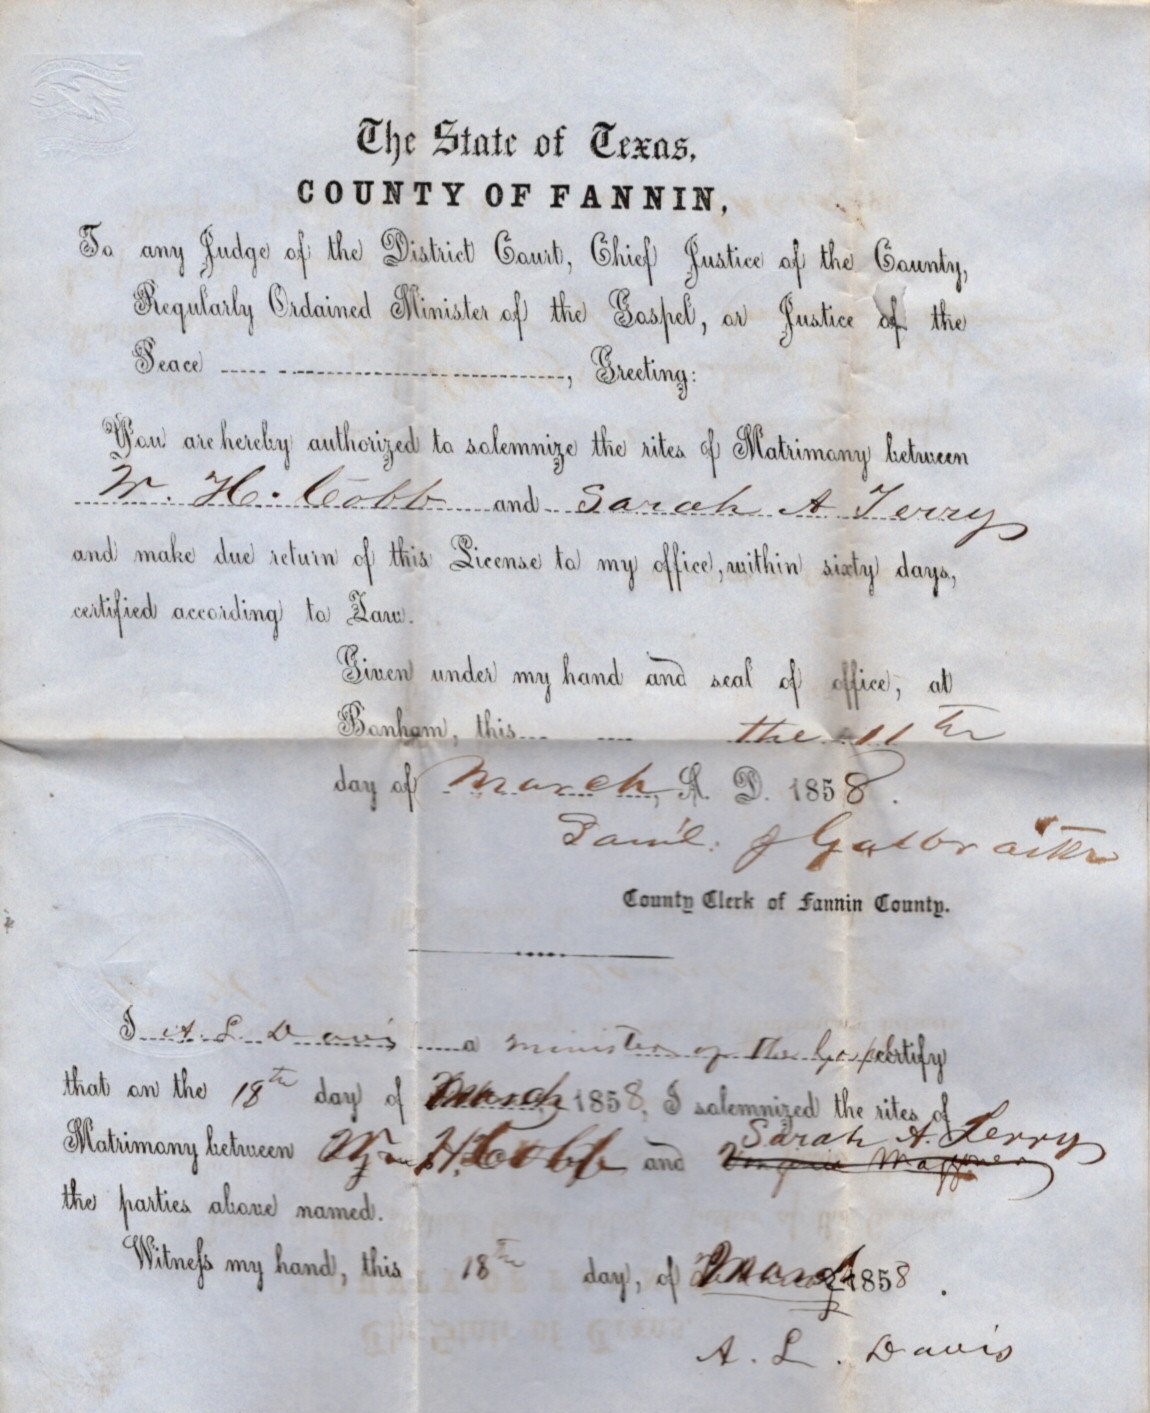 The State of Texas,
COUNTY OF FANNIN,
To any Judge of the District Court, Chief Justice of the County,
Regularly Ordained Minister of the Gospel, or Justice of the
Peace, Greeting:
You are hereby authorized to solemnize the rites of Matrimony between
W. H. Cobb and Sarah A Terry
and make due return of this License to my office, within sixty days,
certified according to Law.
Given under my hand and seal of office, at
Bonham, this the 11th
day of March, A. D. 1858.
Sam'l. J Galbraith
County Clerk of Fannin County.
I A. L. Davis a minister of the Gospel certify
that on the 18th day of March 1858, I solemnized the rites of
Sarah A. Terry
Matrimony between Wm H. Cobb and
the parties above named.
Witneſs my hand, this 18th day, of March 1858.
A. L. Davis